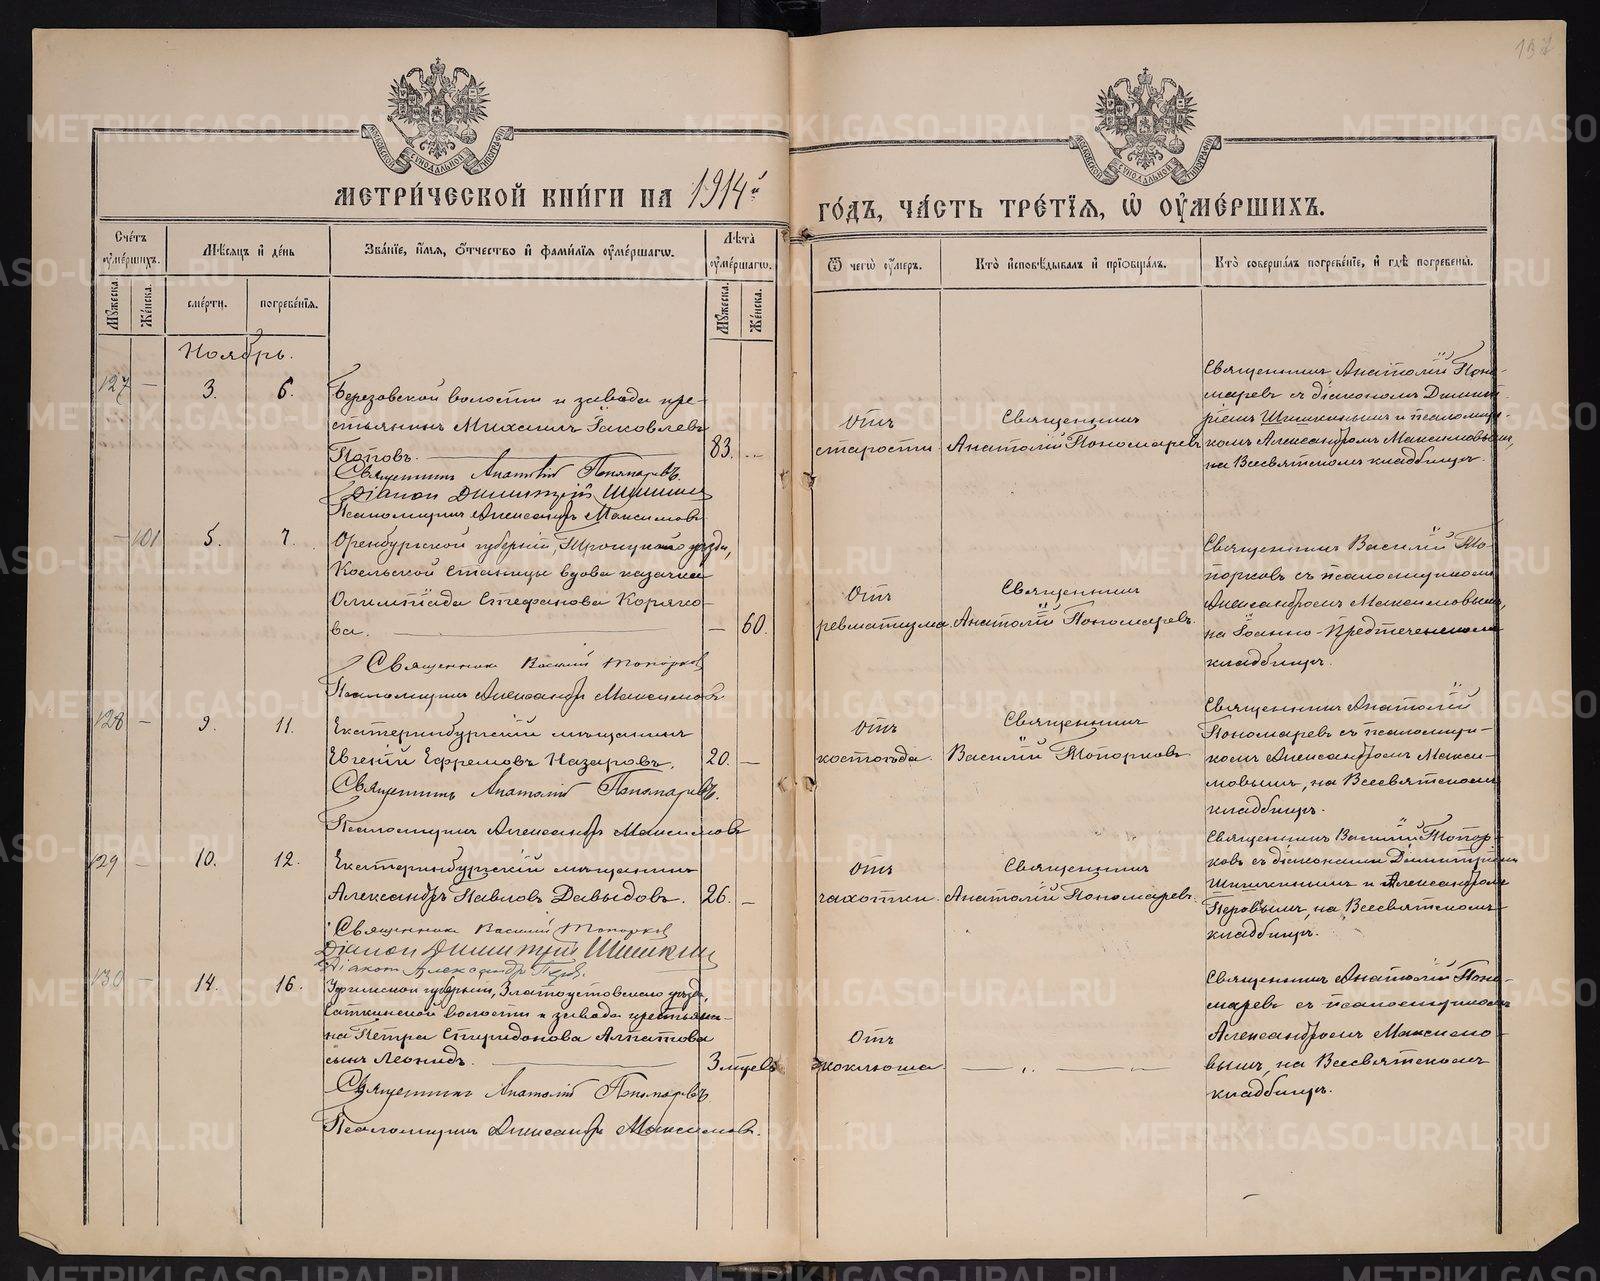 137
МОСКОВСКОЙ СѴНОДАЛЬНОЙ ТИПОГРАФІИ
МОСКОВСКОЙ СѴНОДАЛЬНОЙ ТИПОГРАФІИ
МЕТРИ́ЧЕСКОЙ КНИ́ГИ НА 1914й
ГО́ДЪ, ЧА́СТЬ ТРЕ́ТІѦ, Ѡ҆ ОУ҆МЕ́РШИХЪ.
Сче́тъ оу҆ме́ршихъ.
Мѣ́сѧцъ и҆ де́нь
Зва́нїе, и҆́мѧ, ѻ҆́тчество и҆ фами́лїѧ оу҆ме́ршагѡ.
Лѣ́та оу҆ме́ршагѡ.
Ѿ чегѡ̀ оу҆́меръ.
Кто̀ и҆сповѣ́дывалъ и҆ прїѻбща́лъ.
Кто̀ соверша́лъ погребе́нїе, и҆ гдѣ̀ погребены̀.
Мꙋ́жеска.
Же́нска.
сме́рти.
погребе́нїѧ.
Мꙋ́жеска.
Же́нска.
Ноябрь.
127 — 3. 6.
Березовской волости и завода кре-
стьянинъ Михаилъ Іаковлевъ
Поповъ. 83. —
Священникъ Анатолій Пономаревъ.
Діакон Димитрій Шишкин
Псаломщикъ Александръ Максимовъ
Отъ
старости
Священникъ
Анатолій Пономаревъ
Священникъ Анатолій Поно-
маревъ съ діакономъ Димит-
ріемъ Шишкинымъ и псаломщи-
комъ Александромъ Максимовымъ,
на Всесвятскомъ кладбищѣ.
— 101 5. 7.
Оренбургской губерніи, Троицкаго уѣзда,
Коельской станицы вдова казачка
Олимпіада Стефанова Коряко-
ва. — 60.
Священникъ Василій Топорковъ
Псаломщикъ Александръ Максимовъ
Отъ
ревматизма
Священникъ
Анатолій Пономаревъ.
Священникъ Василій То-
порковъ съ псаломщикомъ
Александромъ Максимовымъ,
на Іоанно-Предтеченскомъ
кладбищѣ.
128 — 9. 11.
Екатеринбургскій мѣщанинъ
Евгеній Ефремовъ Назаровъ. 20. —
Священникъ Анатолій Пономаревъ.
Псаломщикъ Александръ Максимовъ
Отъ
костоѣда.
Священникъ
Василій Топорковъ
Священникъ Анатолій
Пономаревъ съ псаломщи-
комъ Александромъ Макси-
мовымъ, на Всесвятскомъ
кладбищѣ.
129 — 10. 12.
Екатеринбургскій мѣщанинъ
Александръ Павловъ Давыдовъ. 26. —
Священникъ Василій Топорковъ
Діакон Димитрій Шишкин
Діакон Александръ Перов.
Отъ
чахотки.
Священникъ
Анатолій Пономаревъ.
Священникъ Василій Топор-
ковъ съ діаконами Димитріемъ
Шишкинымъ и Александромъ
Перовымъ, на Всесвятскомъ
кладбищѣ.
130 — 14. 16.
Уфимской губерніи, Златоустовскаго уѣзда,
Саткинской волости и завода крестьяни-
на Петра Спиридонова Алпатова
сынъ Леонидъ. 3 мѣсяцевъ
Священникъ Анатолій Пономаревъ
Псаломщикъ Александръ Максимовъ.
Отъ
коклюша
— " — " —
Священникъ Анатолій Поно-
маревъ съ псаломщикомъ
Александромъ Максимо-
вымъ, на Всесвятскомъ
кладбищѣ.
METRIKI.GASO-URAL.RU